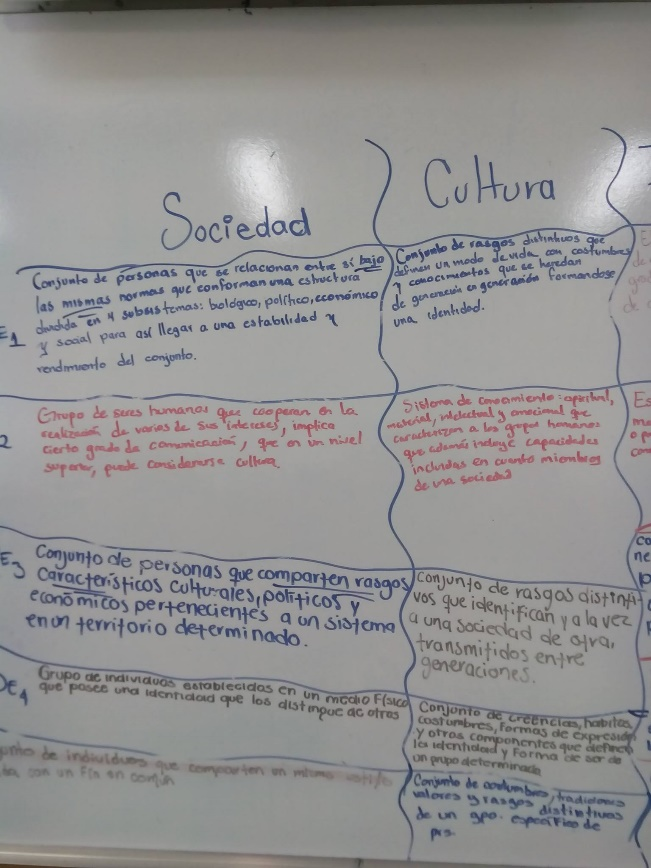 Sociedad
Cultura
E1
Conjunto de personas que se relacionan entre sí bajo
las mismas normas que conforman una estructura
dividida en 4 subsistemas: biológico, político, económico
y social para así llegar a una estabilidad y
rendimiento del conjunto.
Conjunto de rasgos distintivos que
definen un modo de vida con costumbres
y conocimientos que se heredan
de generación en generación formandose
una identidad.
2
Grupo de seres humanos que cooperan en la
realización de varios de sus intereses, implica
cierto grado de comunicación, que en un nivel
superior, puede considerarse cultura
Sistema de conocimiento: espiritual,
material, intelectual y emocional que
caracterizan a los grupos humanos
que además incluye capacidades
incluidas en cuanto miembros
de una sociedad
E3
Conjunto de personas que comparten rasgos
Característicos culturales, políticos y
económicos pertenecientes a un sistema
en un territorio determinado.
Conjunto de rasgos distinti-
vos que identifican y a la vez
a una sociedad de otra,
transmitidos entre
generaciones.
E4
Grupo de individuos establecidos en un medio Físico
que posee una identidad que los distingue de otros
Conjunto de creencias, habitos,
costumbres, formas de expresión
y otros componentes que definen
la identidad y forma de ser de
un grupo determinado
junto de individuos que comparten un mismo
con un fin en común
Conjunto de costumbres, tradiciones
valores y rasgos distintivos
de un gpo. específico de
prs.